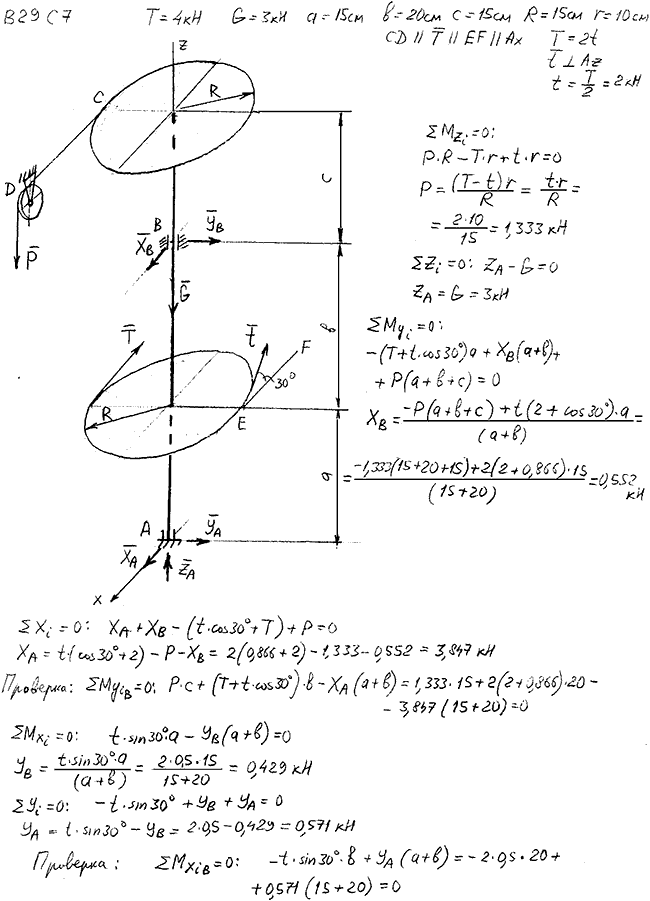 В29 С7 T=4кН G=3кН a=15см в=20см c=15см R=15см r=10см
CD ∥ T̅ ∥ EF ∥ Ax T=2t
t̅ ⊥ Az
t = T/2 = 2кН
z
C
R
D
P̅
c
B
X̅B
Y̅B
G̅
в
T̅
t̅
F
30°
R
E
a
A
X̅A
Y̅A
Z̅A
x
ΣMzi=0:
P·R−T·r+t·r=0
P = (T−t)r/R = t·r/R =
= 2·10/15 = 1,333 кН
ΣZi=0: ZA−G=0
ZA=G=3кН
ΣMyi=0:
−(T+t·cos30°)a+XB(a+в)+
+P(a+в+c)=0
XB = (−P(a+в+c)+t(2+cos30°)·a)/(a+в) =
= (−1,333(15+20+15)+2(2+0,866)·15)/(15+20) = 0,552 кН
ΣXi=0: XA+XB−(t·cos30°+T)+P=0
XA=t(cos30°+2)−P−XB=2(0,866+2)−1,333−0,552=3,847 кН
Проверка: ΣMyiB=0: P·c+(T+t·cos30°)·в−XA(a+в)=1,333·15+2(2+0,866)·20−
−3,847(15+20)=0
ΣMxi=0: t·sin30°·a−YB(a+в)=0
YB = t·sin30°·a/(a+в) = 2·0,5·15/(15+20) = 0,429 кН
ΣYi=0: −t·sin30°+YB+YA=0
YA=t·sin30°−YB=2·0,5−0,429=0,571 кН
Проверка: ΣMxiB=0: −t·sin30°·в+YA(a+в)=−2·0,5·20+
+0,571(15+20)=0